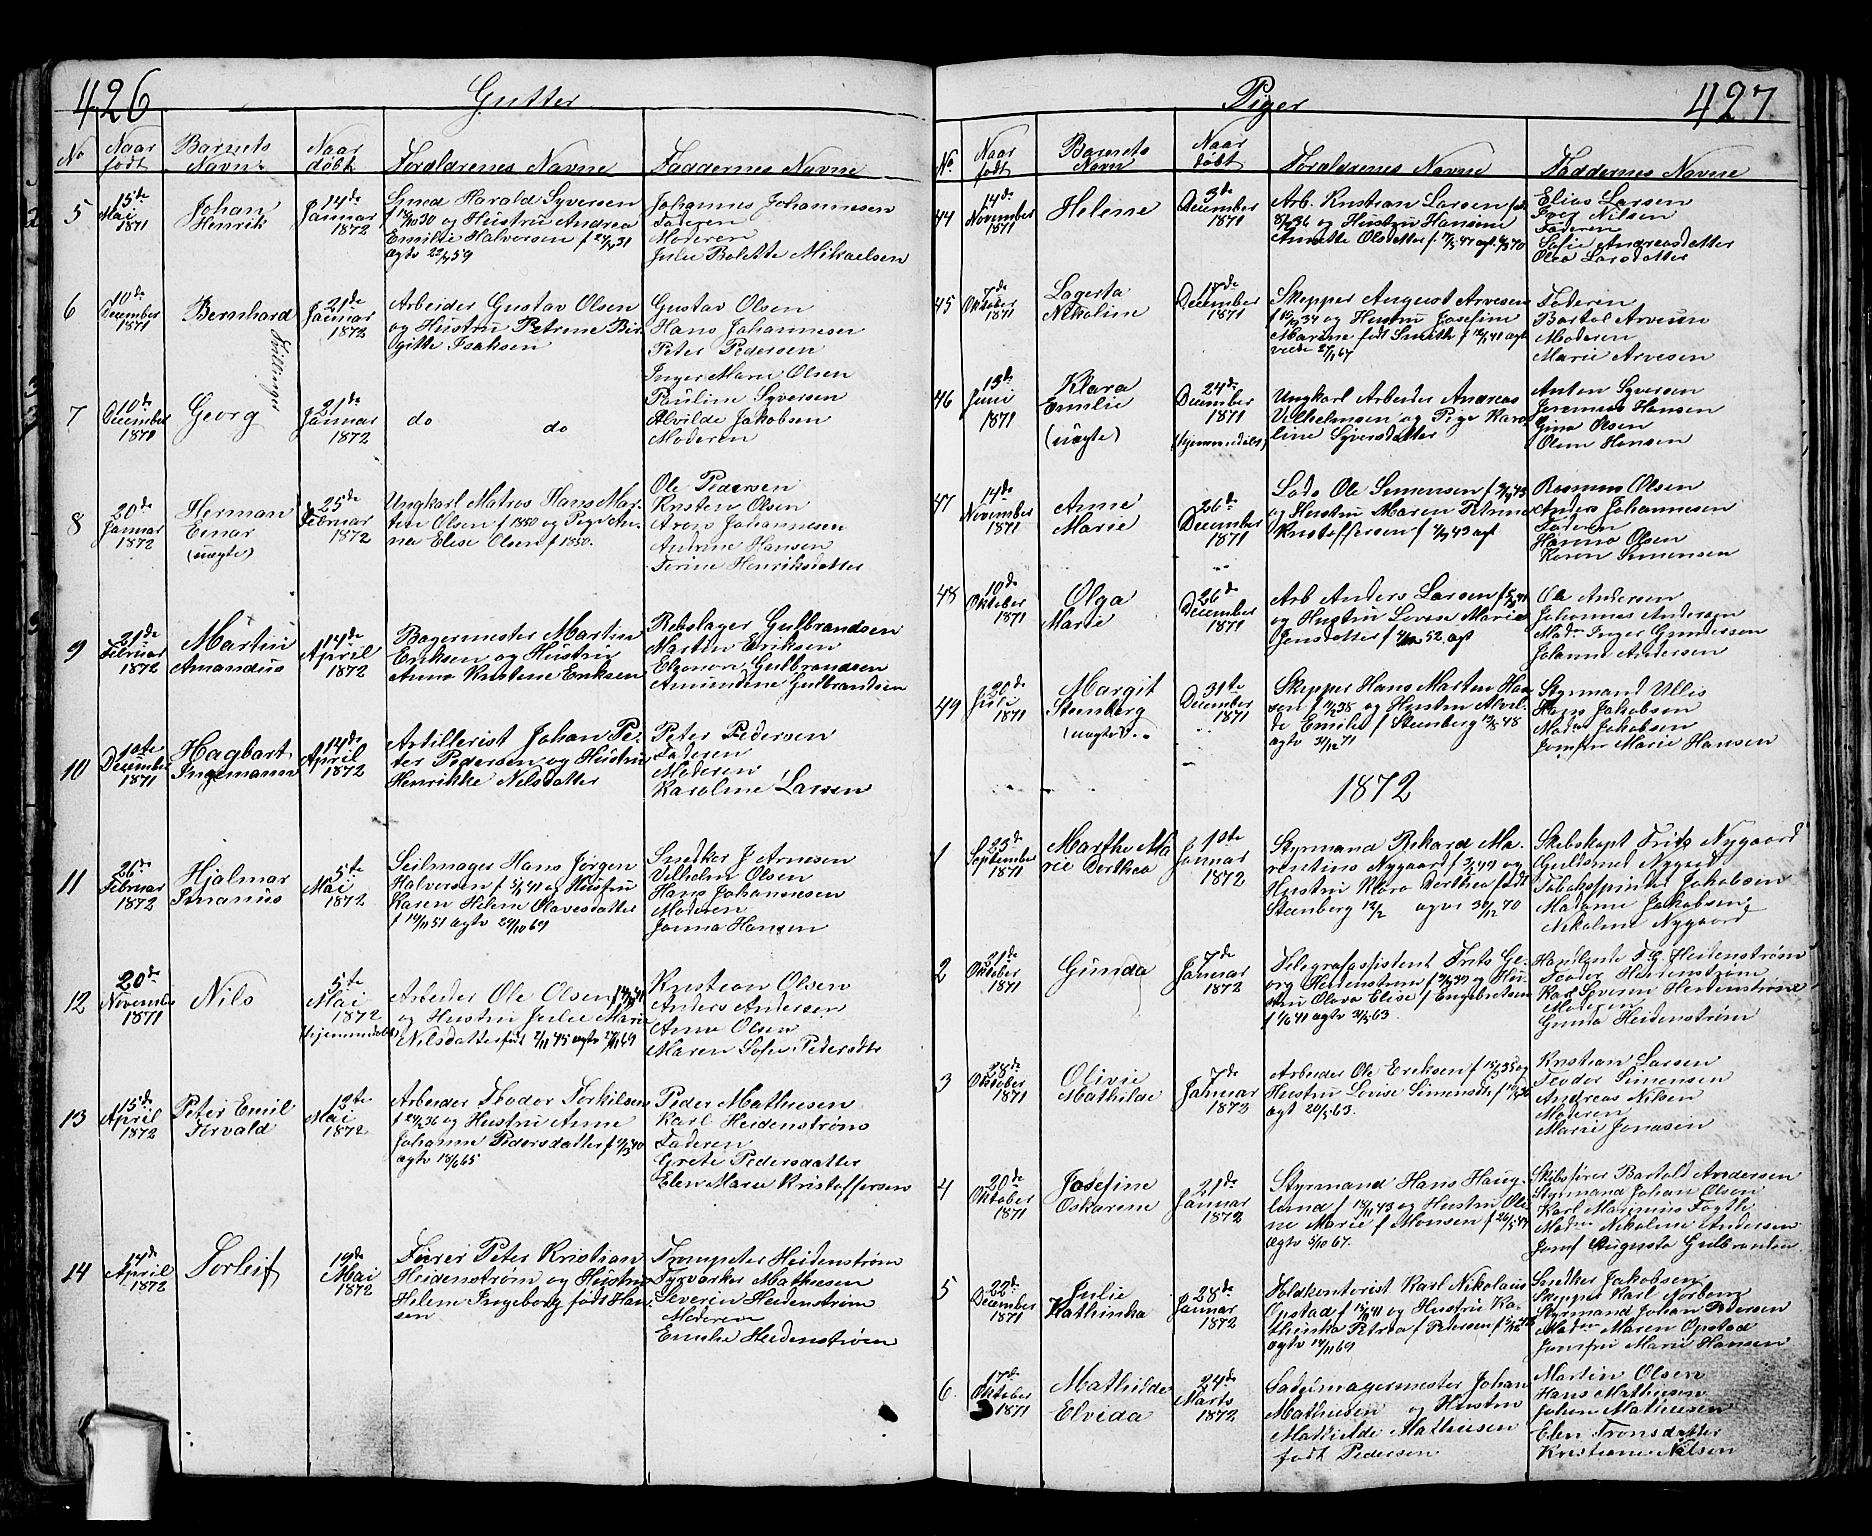 426
Gutter
No
Naar født
Barnets Navn
Naar døbt
Forældrenes Navne
Faddernes Navne
5
15de Mai 1871
Johan Henrik
14de Januar 1872
Smed Harald Syversen
og Hustru Andrea
Emilie Halvorsen
agtv
Johannes Johannesen
Faderen
Moderen
Julie Bolette Mikaelsen
6
10de December 1871
Bernhard
Tvillinger
21de Januar 1872
Arbeider Gustav Olsen
og Hustru Petrine Bir
gitte Isaksen
Gustav Olsen
Hans Johannesen
Peter Pedersen
Inger Marie Olsen
7
10de December 1871
Georg
21de Januar 1872
do do
Pauline Syversen
Alvilde Jakobsen
Moderen
8
20de Januar 1872
Herman Einar (uægte)
25de Februar 1872
Ungkarl Matros Hans Mar
tin Olsen f 1850 og Pige An
na Elise Olsen f 1850.
Ole Pedersen
Kristen Olsen
Arens Johannesen
Andrine Hansen
Torine Henriksdatter
9
21de Februar 1872
Martin Amandus
14de April 1872
Bagermester Martin
Eriksen og Hustru
Anne Kristine Eriksen
Rebslager Gulbrandsen
Martin Eriksen
Eleonore Gulbrandsen
Amundine Gulbrandsen
10
10te December 1871
Hagbart Ingemann
14de April 1872
Artillerist Johan Pe-
ter Pedersen og Hustru
Henrikke Nilsdatter
Peter Pedersen
Faderen
Moderen
Karoline Larsen
11
26de Februar 1872
Hjalmar Imanus
5te Mai 1872
Seilmager Hans Jörgen
Halversen og Hustru
Karen Helene Olavesdatter
agtv
Snedker J Arnesen
Vilhelm Olsen
Hans Johannesen
Moderen
Janna Hansen
12
20de November 1871
Nils
5te Mai 1872 (hjemmedøbt)
Arbeider Ole Olsen
og Hustru Julie Marie
Nilsdatter født
Kristian Olsen
Anders Andersen
Anne Olsen
Maren Sofie Pedersdtr
13
15de April 1872
Peter Emil Torvald
12te Mai 1872
Arbeider Thodor Torkilsen
og Hustru Anne
Johanne Pedersdatter
agtv
Peder Mathiesen
Karl Heidenstrøm
Faderen
Grete Pedersdatter
Elen Marie Kristoffersen
14
14de April 1872
Torleif
19de Mai 1872
Furer Peter Kristian
Heidenstrøm og Hustru
Helene Ingeborg født Han
sen
Trompeter Heidenstrøm
Fyrvarker Mathiesen
Severin Heidenstrøm
Moderen
Emilie Heidenstrøm
427
Piger
No
Naar født
Barnets Navn
Naar døbt
Forældrenes Navne
Faddernes Navne
44
14de November 1871
Helene
3de December 1871
Arb. Kristian Larsen
og Hustru Hansine
Annette Olsdatter
Elias Larsen
Iver Nilsen
Faderen
Sofie Andreasdatter
Olea Larsdatter
45
7de Oktober 1871
Lagerta Nikoline
17de December 1871
Skipper August Arvesen
og Hustru Josefine
Marine født Smith
Faderen
Bartol Arvesen
Moderen
Marie Arvesen
46
13de Juni 1871
Klara Emilie (uægte)
24de December 1871 (hjemmedøbt)
Ungkarl Arbeider Andreas
Vilhelmsen og Pige Karo
line Syversdatter
Anton Syversen
Jeremias Hansen
Gina Olsen
Olene Hansen
47
14de November 1871
Anne Marie
26de December 1871
Lods Ole Simensen
og Hustru Maren Petrine
Kristoffersen
Rasmus Olsen
Anders Johannesen
Faderen
Hanna Olsen
Karen Simensen
48
10de Oktober 1871
Olga Marie
26de December 1871
Arb Anders Larsen
og Hustru Lovise Marie
Jensdatter
Ole Andersen
Johannes Andersen
Mad. Inger Gundersen
Johanne Andersen
49
20de Juli 1871
Margit Stenberg (uægte)
31te December 1871
Skipper Hans Marten Han
sen og Hustru Alvil
de Emilie f Stenberg
agtv
Styrmand Ullis
Hans Jakobsen
Madm Jakobsen
Jomfru Marie Hansen
1872
1
23de September 1871
Marthe Ma rie Dorthea
10de Januar 1872
Styrmand Rikard Ma
rentius Nygaard og
Hustru Klara Dorthea født
Stenberg
Skibskapt Fritz Nygaard
Guldsmed Nygaard
Tobakspinder Jakobsen
Madame Jakobsen
Nikoline Nygaard
2
21de Oktober 1871
Gunda
7de Januar 1872
Telegrafassistent Frits Ge-
org Heidenstrøm og Hu-
stru Olava Elise f Engebretsen
Handlende F. G. Heidenstrøm
Teodor Heidenstrøm
Karl Severin Heidenstrøm
Moderen
Gunda Heidenstrøm
3
28de Oktober 1871
Olivie Mathilde
7de Januar 1872
Arbeider Ole Eriksen og
Hustru Lovise Simensdt
agt
Kristian Larsen
Teodor Simensen
Andreas Nilsen
Moderen
Marie Jonasen
4
20de Oktober 1871
Josefine Oskarine
21de Januar 1872
Styrmand Hans Haug-
lund og Hustru Oli
ne Marie f Monsen
Skibsfører Bartold Andersen
Styrmand Johan Olsen
Karl Magnus Fogth
Madm Nikoline Andersen
Jomf Augusta Gulbrandsen
5
22de December 1871
Julie Kathinka
28de Januar 1872
Toldkontorist Karl Nikolaus
Opstad og Hustru Ka-
thinka Petrea f Petersen
agtv
Snedker Jakobsen
Skipper Karl Norberg
Styrmand Johan Petersen
Madm Maren Opstad
Jomfru Marie Hansen
6.
17de Oktober 1871
Mathilde Elvida
24de Marts 1872
Sadelmagermester Johan
Mathiesen og Hustru
Mathilde Mathiesen
født Pedersen
Martin Olsen
Hans Mathiesen
Johan Mathiesen
Elen Tronsdatter
Kristiane Nilsen